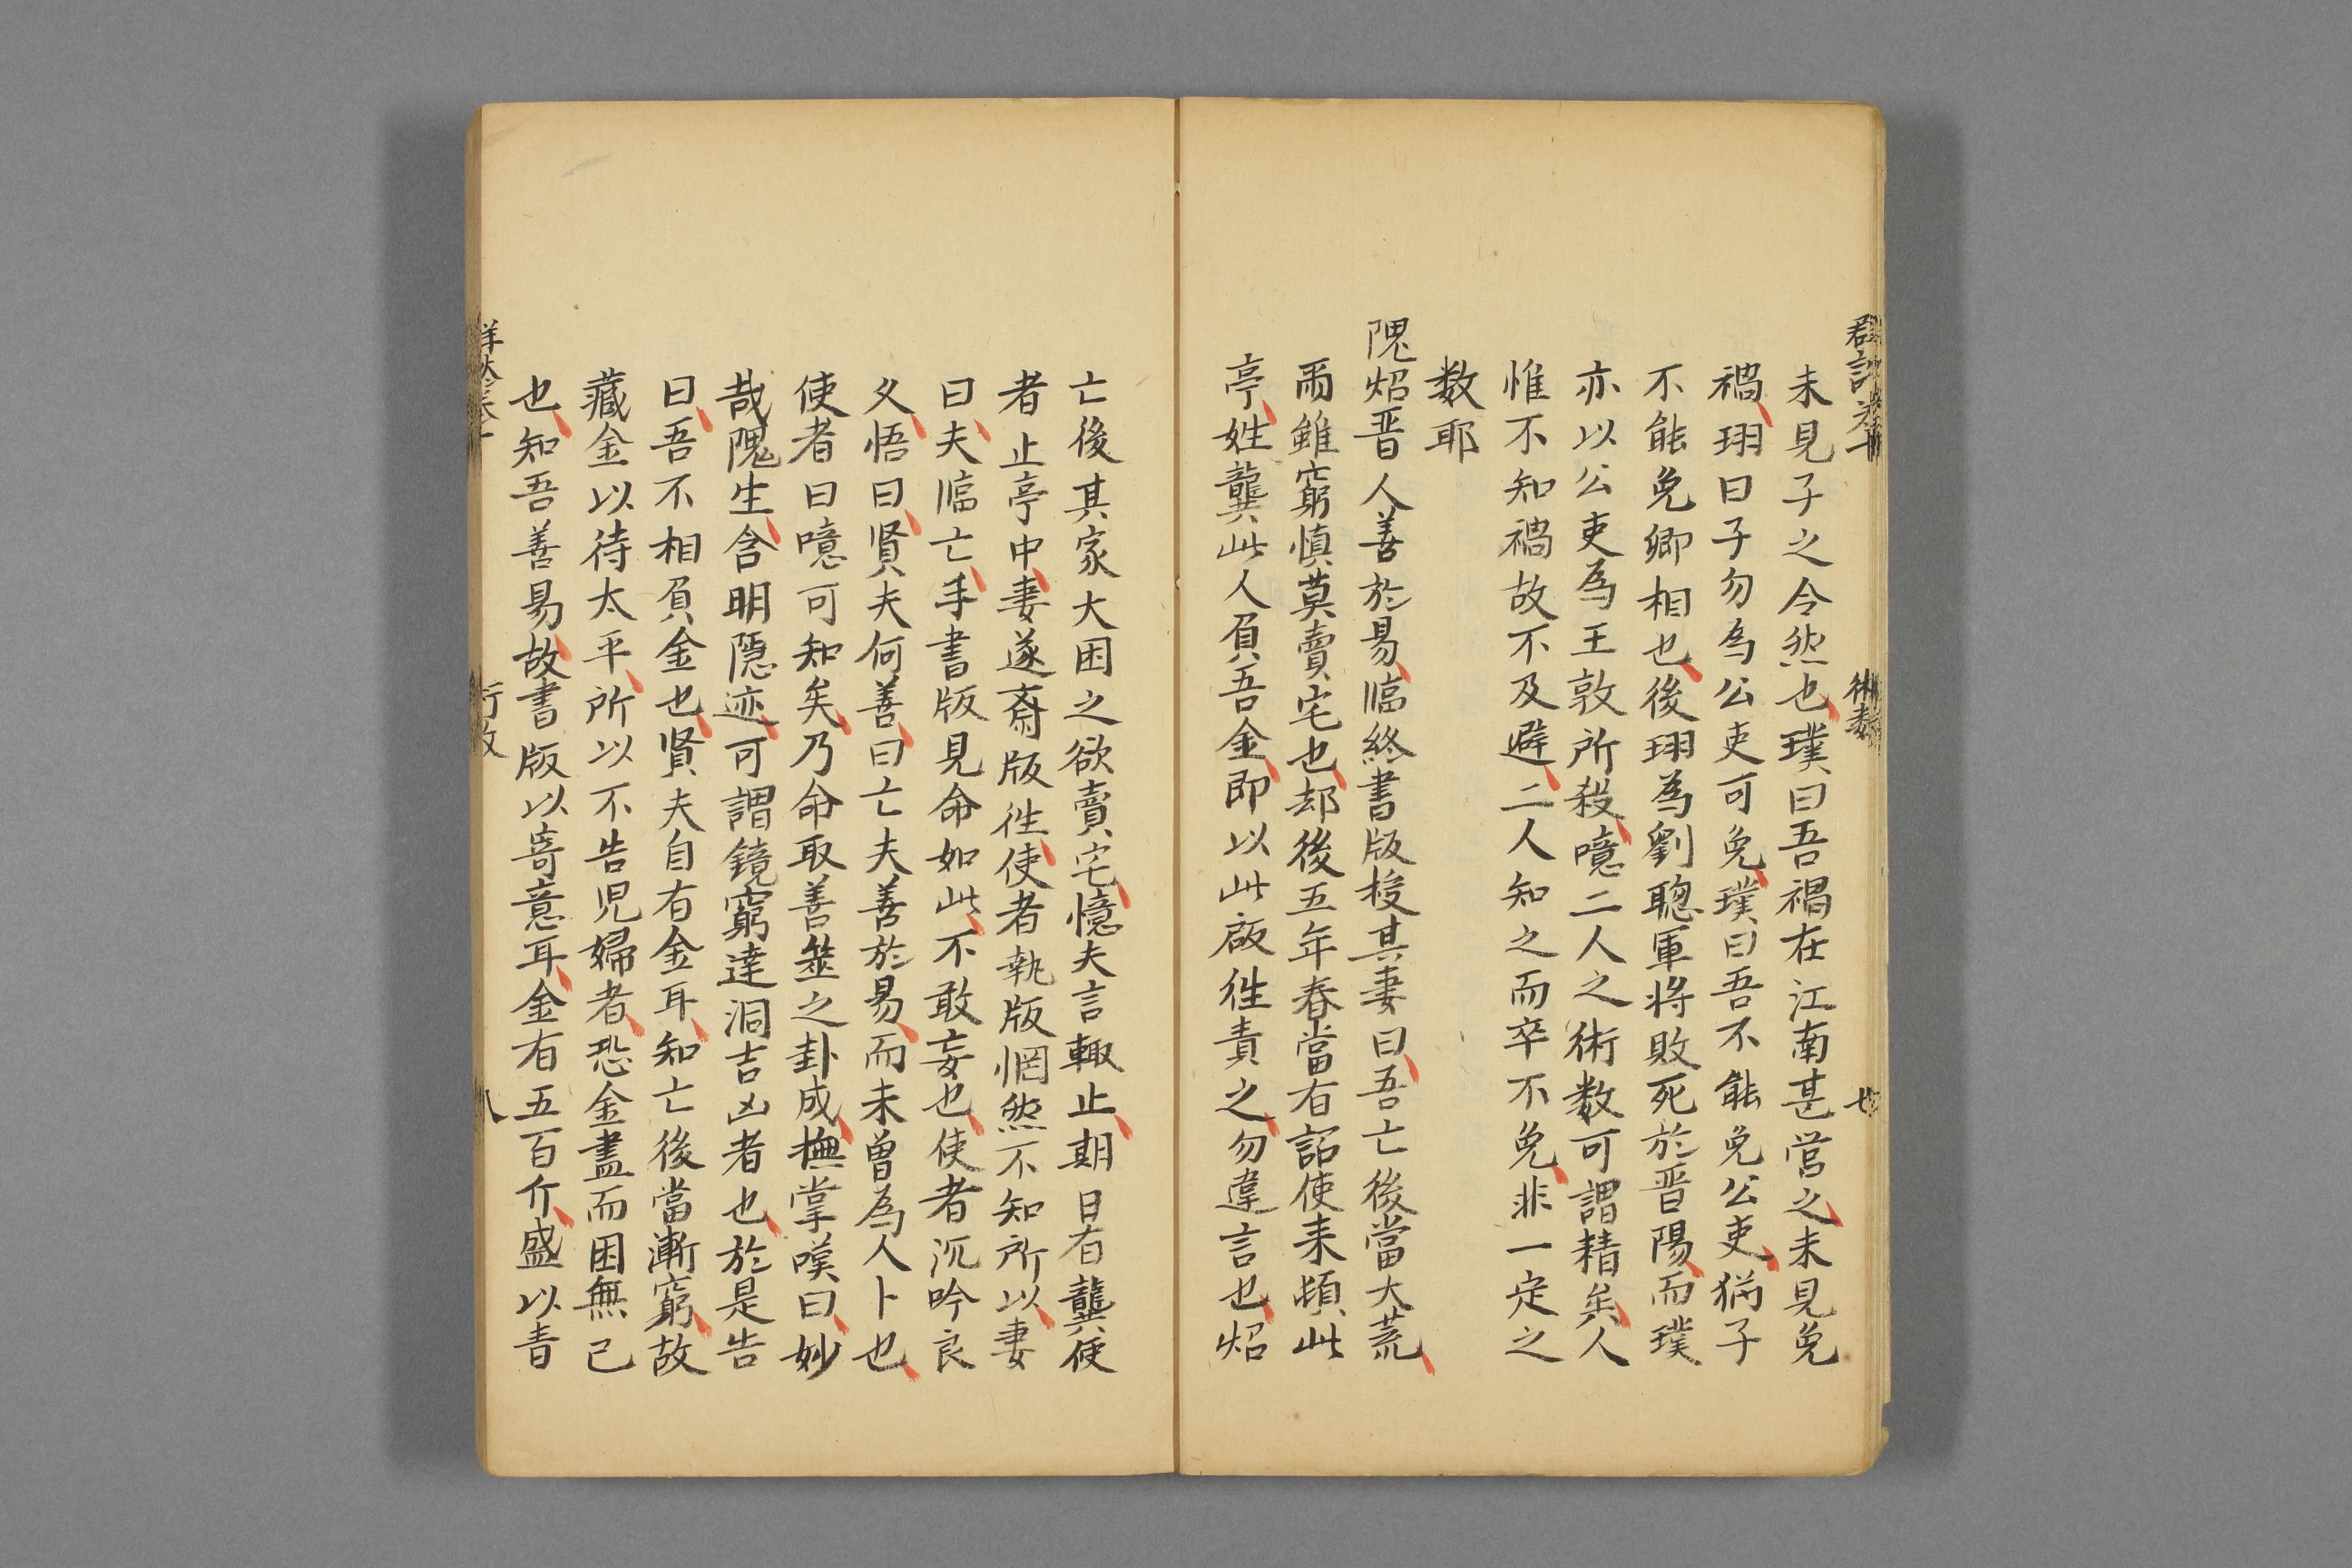 未見子之令然也璞曰吾禍在江南甚営之未見免
禍珝曰子勿為公吏可免璞曰吾不能免公吏猶子
不能免卿相也後珝為劉聰軍将敗死於晋陽而璞
亦以公吏為王敦所殺噫二人之術数可謂精矣人
惟不知禍故不及避二人知之而卒不免非一定之
数耶
隗炤晋人善於易臨終書版授其妻曰吾亡後當大荒
雨雖窮慎莫賣宅也却後五年春當有詔使来頓此
亭姓龔此人負吾金即以此版徃責之勿違言也炤
亡後其家大困之欲賣宅憶夫言輙止期日有龔使
者止亭中妻遂齎版徃使者執版惘然不知所以妻
曰夫臨亡手書版見命如此不敢妄也使者沉吟良
乆悟曰賢夫何善曰亡夫善於易而未曾為人卜也
使者曰噫可知矣乃命取善筮之卦成撫掌嘆曰妙
哉隗生含明隠迹可謂鏡窮達洞吉凶者也於是告
曰吾不相負金也賢夫自有金耳知亡後當漸窮故
藏金以待太平所以不告児婦者恐金盡而困無已
也知吾善易故書版以寄意耳金有五百斤盛以青